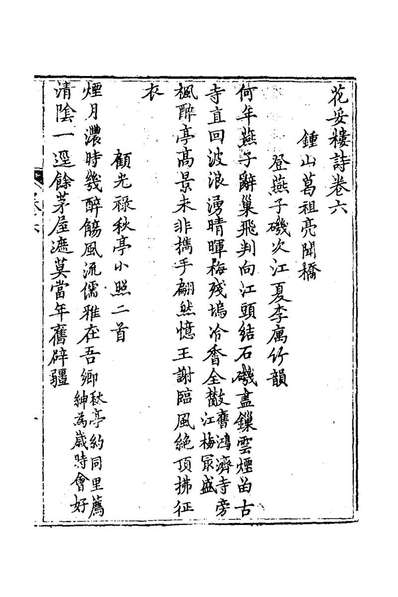 花妥樓詩卷六
鍾山葛祖亮聞橋
登燕子磯次江夏李廌竹韻
何年燕子辭巢飛判向江頭結石磯盡鏁雲煙留古
寺直回波浪湧晴暉梅殘塢冷香全散舊鴻濟寺旁江梅㝡盛
楓醉亭高景未非攜手翩然憶王謝臨風絶頂拂征
衣
顧光祿秋亭小照二首
煙月濃時幾醉觴風流儒雅在吾鄉秋亭約同里薦紳為歲時會好
清陰一逕餘茅屋遮莫當年舊辟疆